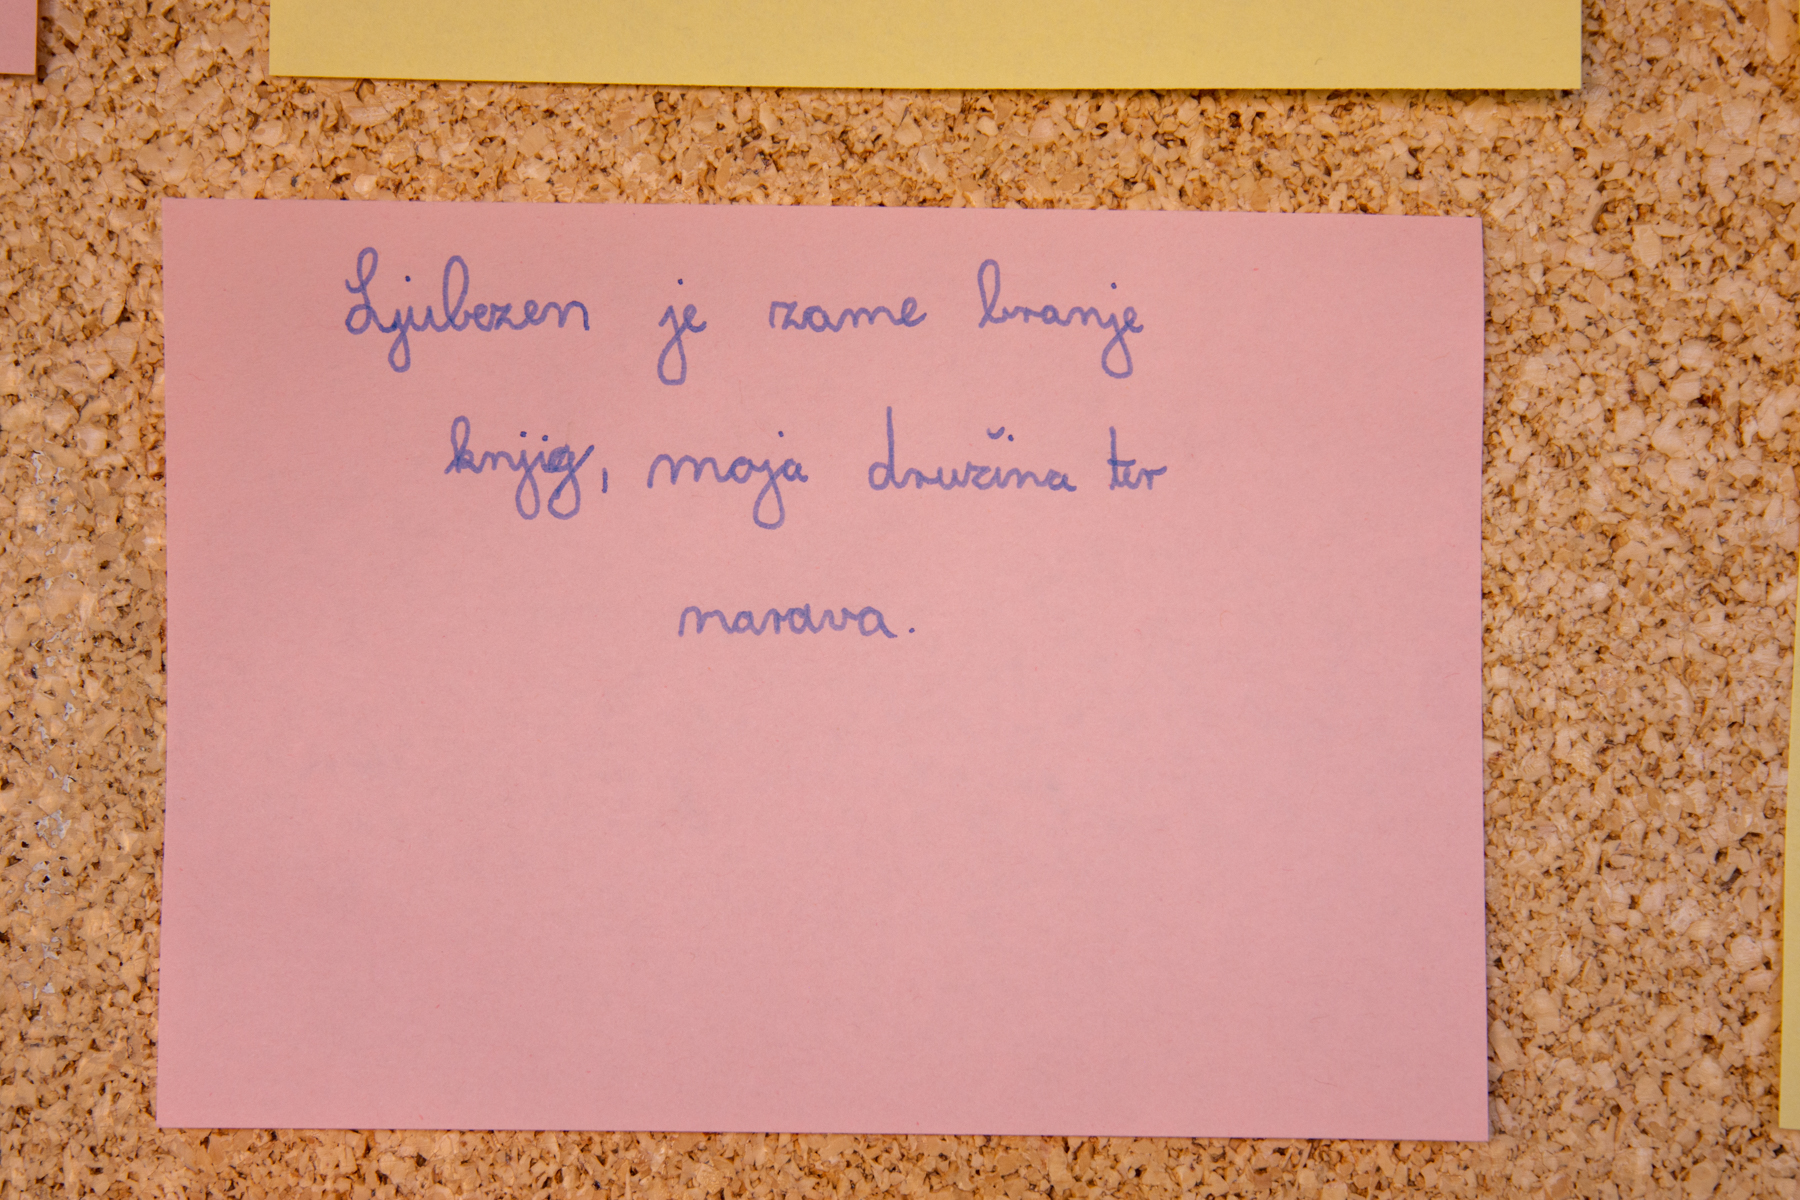 Ljubezen je zame branje
knjig, moja družina ter
narava.